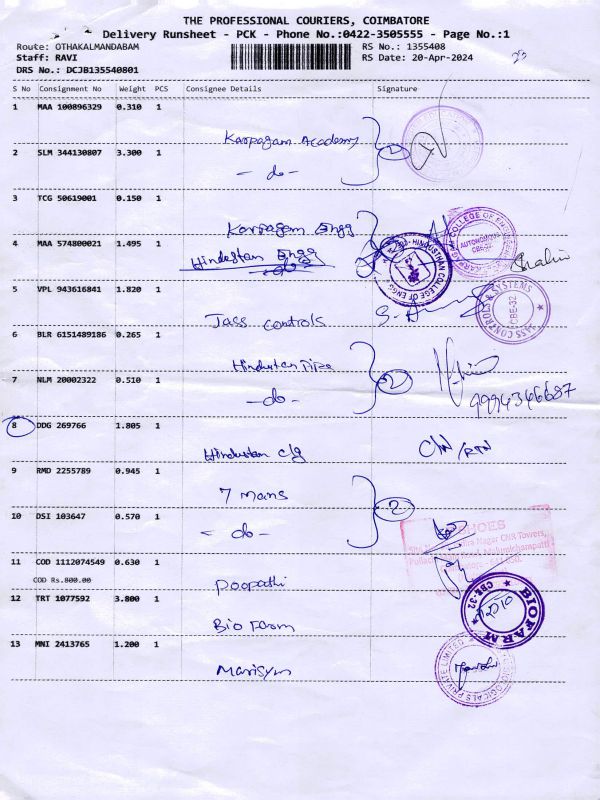 THE PROFESSIONAL COURIERS, COIMBATORE
Delivery Runsheet - PCK - Phone No.:0422-3505555 - Page No.:1
Route: OTHAKALMANDABAM RS No.: 1355408
Staff: RAVI RS Date: 20-Apr-2024
DRS No.: DCJB135540801
S No Consignment No Weight PCS Consignee Details Signature
1 MAA 100896329 0.310 1
Karpagam Academy 2
2 SLM 344130807 3.300 1
- do -
3 TCG 50619001 0.150 1
Karpagam Engg
4 MAA 574800021 1.495 1
Hindustan Engg
- do -
HINDUSTHAN COLLEGE OF ENGG
COLLEGE OF ENGG
AUTONOMOUS
5 VPL 943616841 1.820 1
Jass controls
JASS CONTROLS & SYSTEMS
CBE-32
6 BLR 6151489186 0.265 1
Hindustan Pipe
7 NLM 20002322 0.510 1
- do - 2
9994346687
8 DDG 269766 1.805 1
Hindustan clg
9 RMD 2255789 0.945 1
7 Mans
10 DSI 103647 0.570 1
- do - 2
11 COD 1112074549 0.630 1
COD Rs.800.00
Poopathi
12 TRT 1077592 3.800 1
Bio Farm
BIOFARM
CBE-32
13 MNI 2413765 1.200 1
Marisym